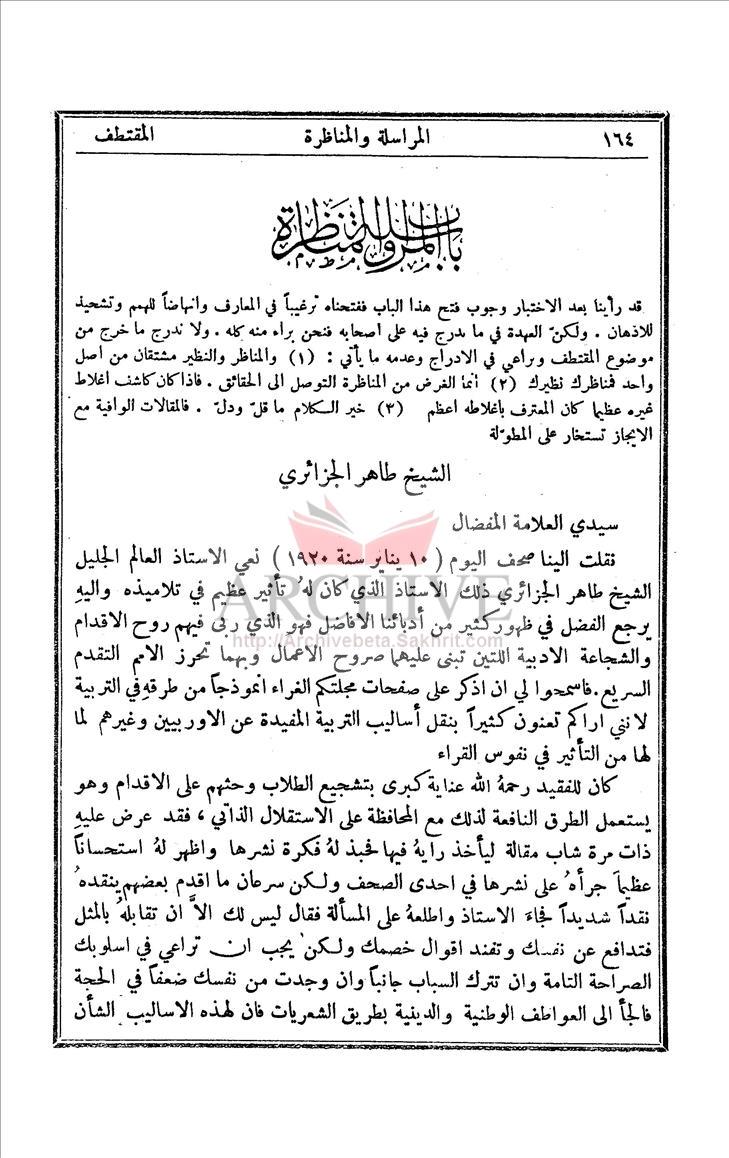 ١٦٤ المراسلة والمناظرة المقتطف
باب المراسلة والمناظرة
قد رأينا بعد الاختبار وجوب فتح هذا الباب ففتحناه ترغيباً في المعارف وانهاضاً للهمم وتشحيذ
للاذهان . ولكنّ العهدة في ما يدرج فيه على اصحابه فنحن براء منه كله . ولا ندرج ما خرج من
موضوع المقتطف ونراعي في الادراج وعدمه ما يأتي : (١) والمناظر والنظير مشتقان من أصل
واحد فمناظرك نظيرك (٢) انما الغرض من المناظرة التوصل الى الحقائق . فاذا كان كاشف اغلاط
غيره عظيما كان المعترف باغلاطه اعظم (٣) خير الكلام ما قلّ ودلّ . فالمقالات الوافية مع
الايجاز تستخار على المطوّلة
الشيخ طاهر الجزائري
سيدي العلامة المفضال
نقلت الينا صحف اليوم ( ١٠ يناير سنة ١٩٢٠ ) نعي الاستاذ العالم الجليل
الشيخ طاهر الجزائري ذلك الاستاذ الذي كان لهُ تأثير عظيم في تلاميذه واليهِ
يرجع الفضل في ظهور كثير من أدبائنا الافاضل فهو الذي ربى فيهم روح الاقدام
والشجاعة الادبية اللتين تبنى عليهما صروح الاعمال وبهما تحرز الامم التقدم
السريع. فاسمحوا لي ان اذكر على صفحات مجلتكم الغراء انموذجاً من طرقهِ في التربية
لانني اراكم تعنون كثيراً بنقل أساليب التربية المفيدة عن الاوربيين وغيرهم لما
لها من التأثير في نفوس القراء
كان للفقيد رحمهُ الله عناية كبرى بتشجيع الطلاب وحثهم على الاقدام وهو
يستعمل الطرق النافعة لذلك مع المحافظة على الاستقلال الذاتي ، فقد عرض عليهِ
ذات مرة شاب مقالة ليأخذ رايهُ فيها فحبذ لهُ فكرة نشرها واظهر لهُ استحساناً
عظيماً جرأهُ على نشرها في احدى الصحف ولكن سرعان ما اقدم بعضهم ينقدهُ
نقداً شديداً فجاءَ الاستاذ واطلعهُ على المسألة فقال ليس لك الاَّ ان تقابلهُ بالمثل
فتدافع عن نفسك وتفند اقوال خصمك ولكن يجب ان تراعي في اسلوبك
الصراحة التامة وان تترك السباب جانباً وان وجدت من نفسك ضعفاً في الحجة
فالجأ الى العواطف الوطنية والدينية بطريق الشعريات فان لهذه الاساليب الشأن
ARCHIVE
http://Archivebeta.Sakhrit.com